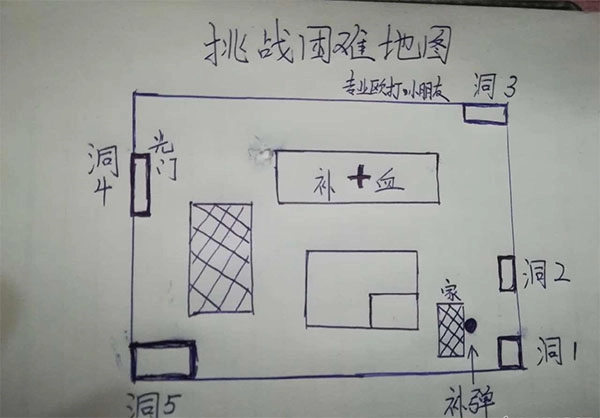 挑战困难地图
专业欧打小朋友
洞3
光门
洞4
补+血
家
洞2
洞1
洞5
补弹